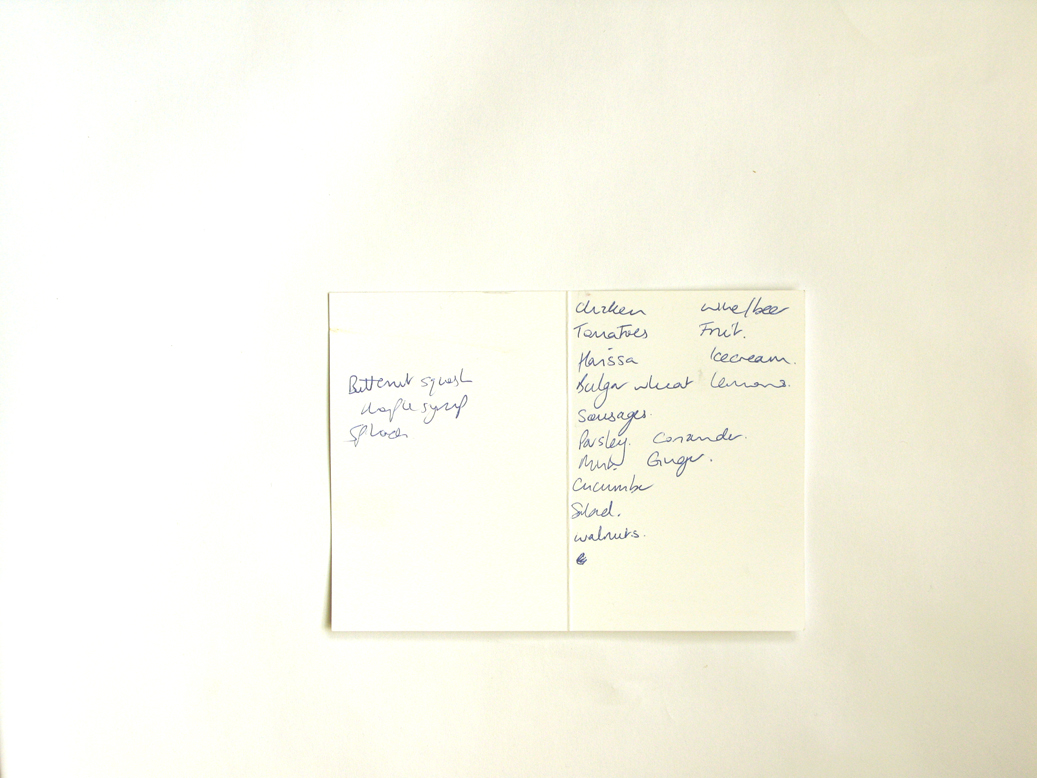 Butternut squash
maple syrup
Spinach
Chicken
Tomatoes
Harissa
Bulgar wheat
Sausages.
Parsley. Coriander.
Mint. Ginger.
Cucumber
Salad.
walnuts.
wine/beer
Fruit.
Icecream.
Lemons.